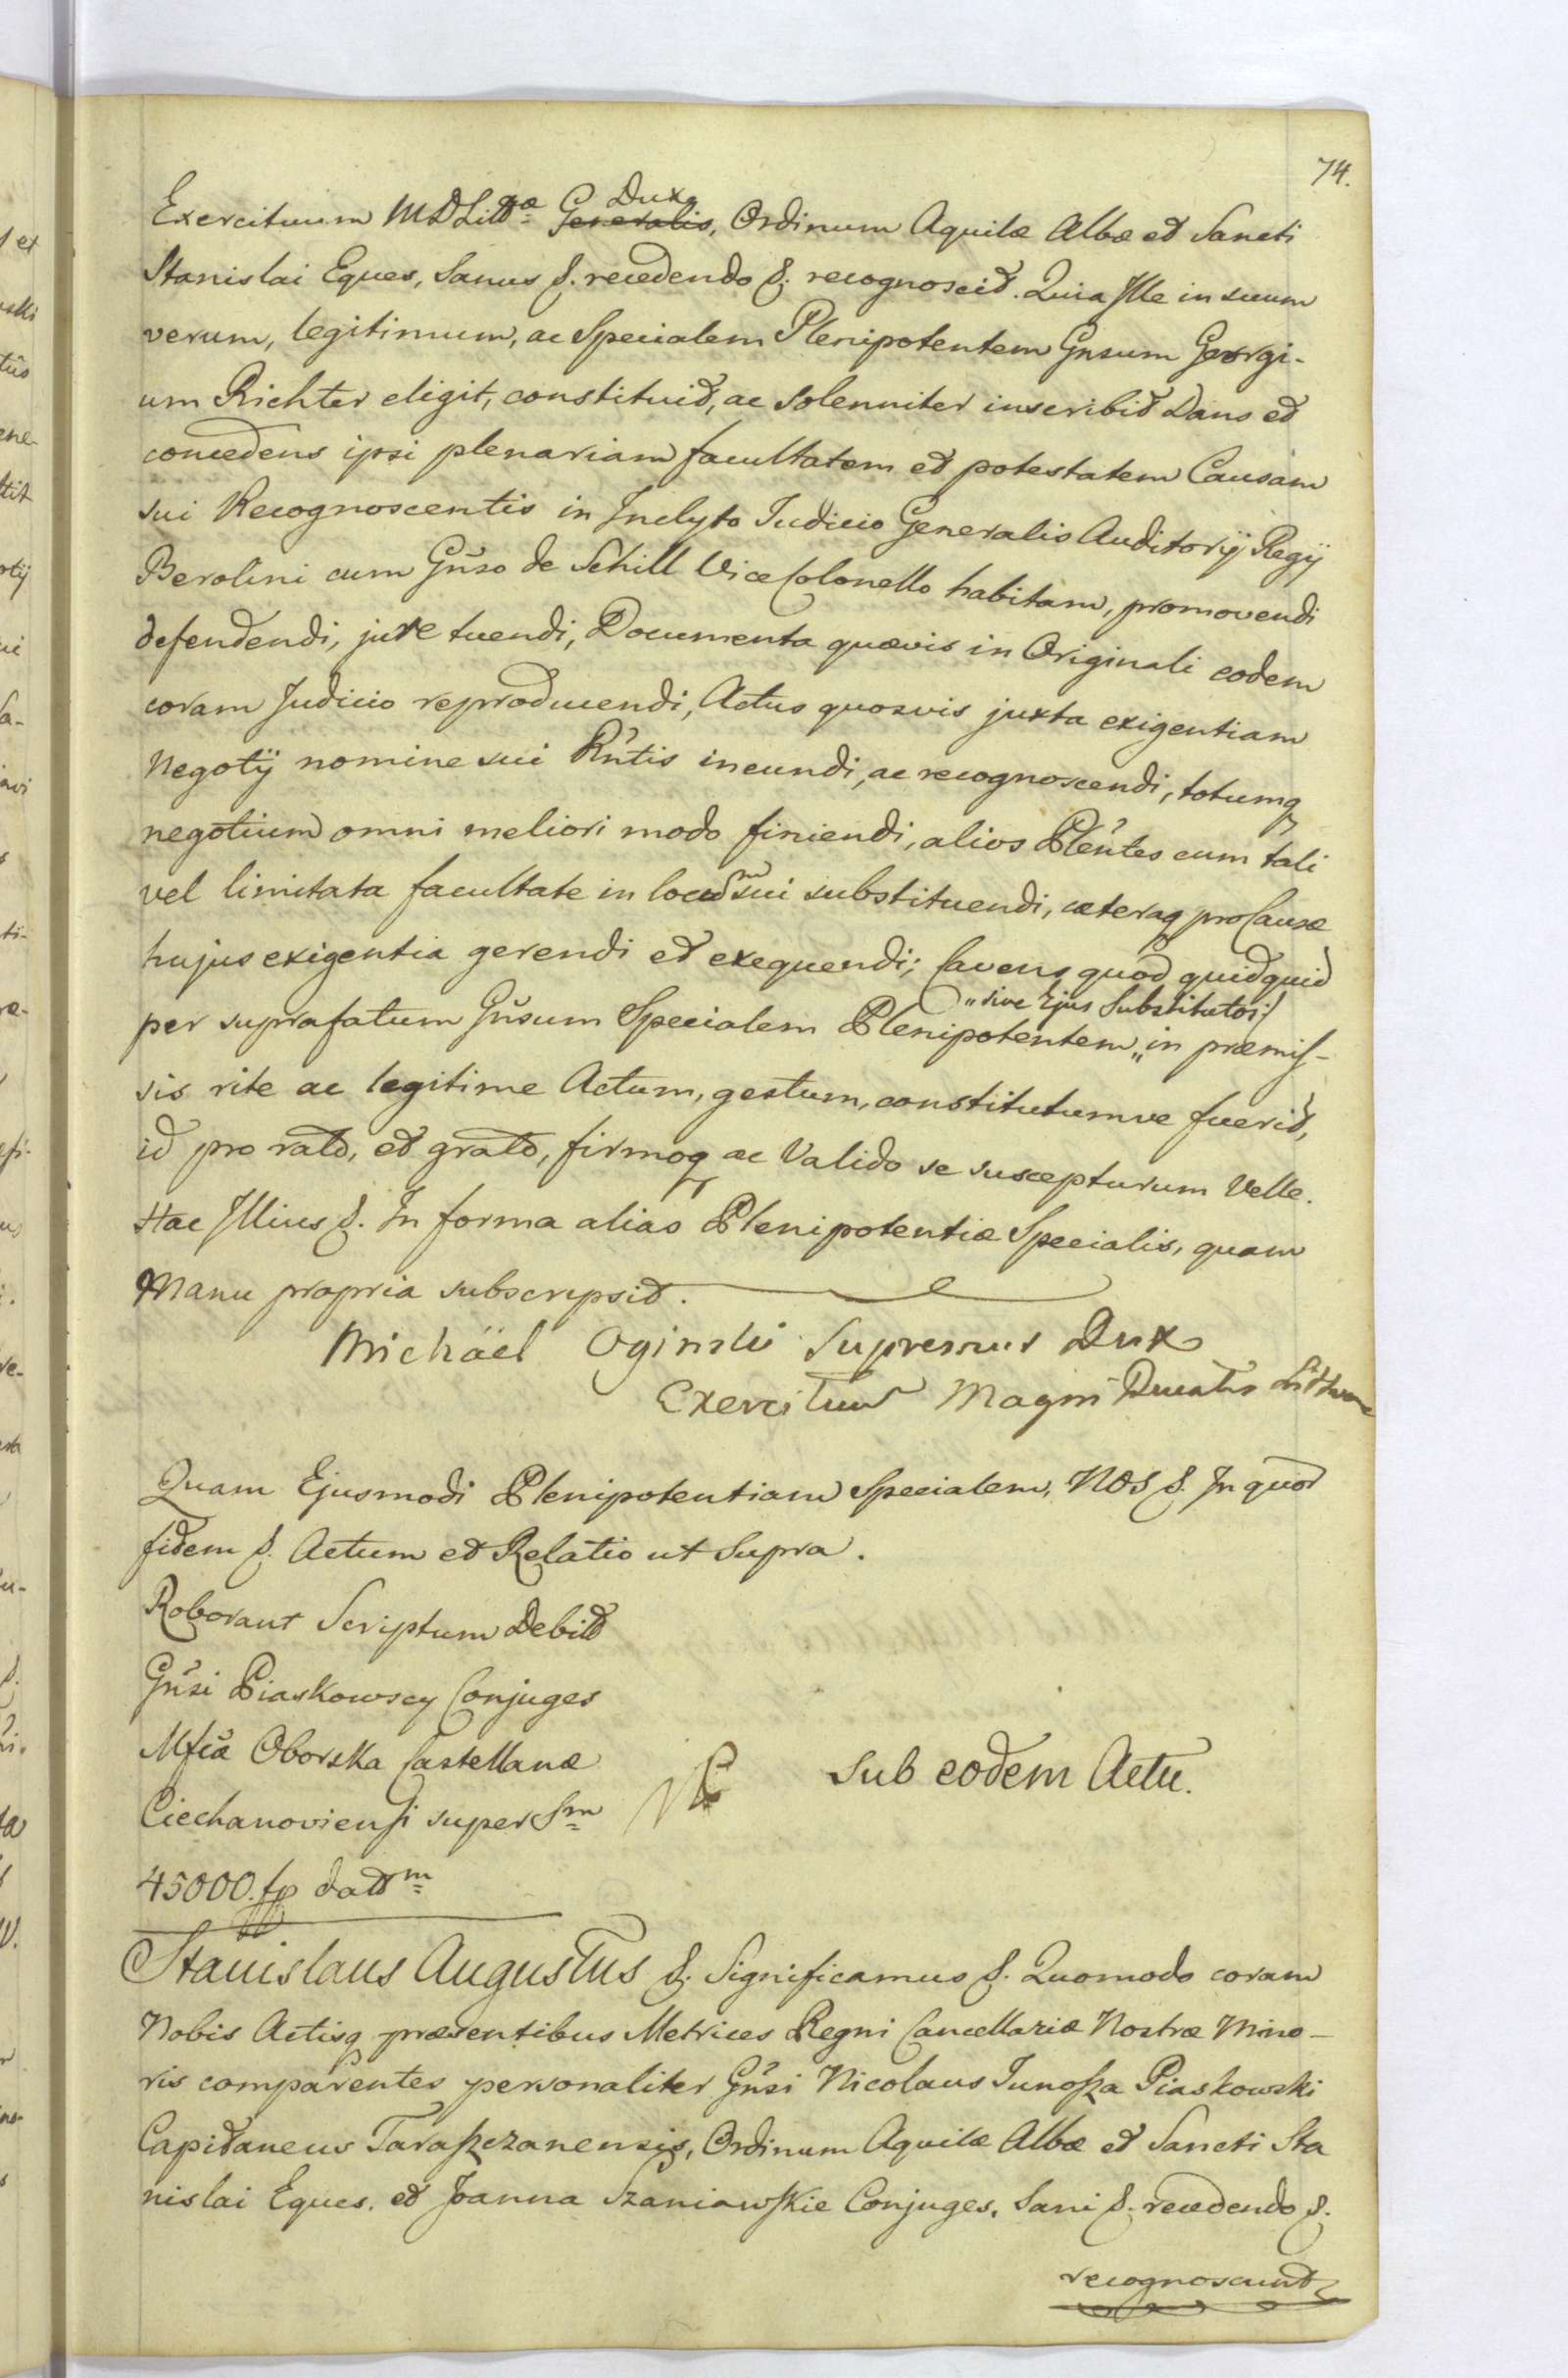 74.
Exercituum MDLittæ Dux Generalis, Ordinum Aquilæ Albæ et Sancti
Stanislai Eques, Sanus &. recedendo &. recognoscit. Quia Ille in suum
verum, legitimum, ac Specialem Plenipotentem Gnsum Georgi-
um Richter eligit, constituit, ac Solenniter inscribit Dans et
concedens ipsi plenariam facultatem et potestatem Causam
sui Recognoscentis in Inclyto Judicio Generalis Auditorij Regij
Berolini cum Gnso de Schill Vice Colonello habitam, promovendi
defendendi, jure tuendi, Documenta quævis in Originali eodem
coram Judicio reproducendi, Actus quosvis juxta exigentiam
Negotij nomine sui Rntis ineundi, ac recognoscendi, totumq
negotium omni meliori modo finiendi, alios Plentes cum tali
vel limitata facultate in locum sui substituendi, cæteraq pro Causæ
hujus exigentia gerendi et exequendi; Cavens quod quidquid
"sive Ejus Substitutos/
per suprafatum Gnsum Specialem Plenipotentem " in præmis-
sis rite ac legitime Actum, gestum, constitutumve fuerit,
id pro rato, et grato, firmoq ac Valido se suscepturum Velle.
Hac Illius &. In forma alias Plenipotentiæ Specialis, quam
Manu propria subscripsit.
Michäel Oginski Supremus Dux
Exercituum Magni Ducatus Littwae
Quam Ejusmodi Plenipotentiam Specialem, NOS &. In quor
fidem &. Actum et Relatio ut Supra.
Roborant Scriptum Debitt
Gnsi Piaskowscy Conjuges
Mfcæ Oborska Castellanæ
Ciechanoviensi super Sm
45000. fp dattm
Sub eodem Actu.
Stanislaus Augustus &. Significamus &. Quomodo coram
Nobis Actisq præsentibus Metrices Regni Cancellariæ Nostræ Mino-
ris comparentes personaliter Gnsi Nicolaus Junosza Piaskowski
Capitaneus Taraszczanensis, Ordinum Aquilæ Albæ et Sancti Sta
nislai Eques. et Joanna Szaniawskie Conjuges, Sani &. recedendo &.
recognoscunt